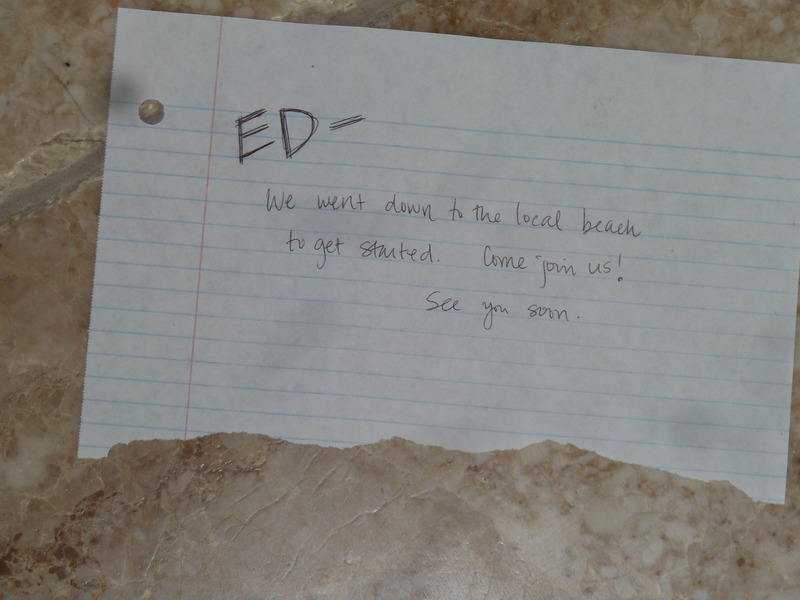 ED-
We went down to the local beach
to get started. Come join us!
See you soon.